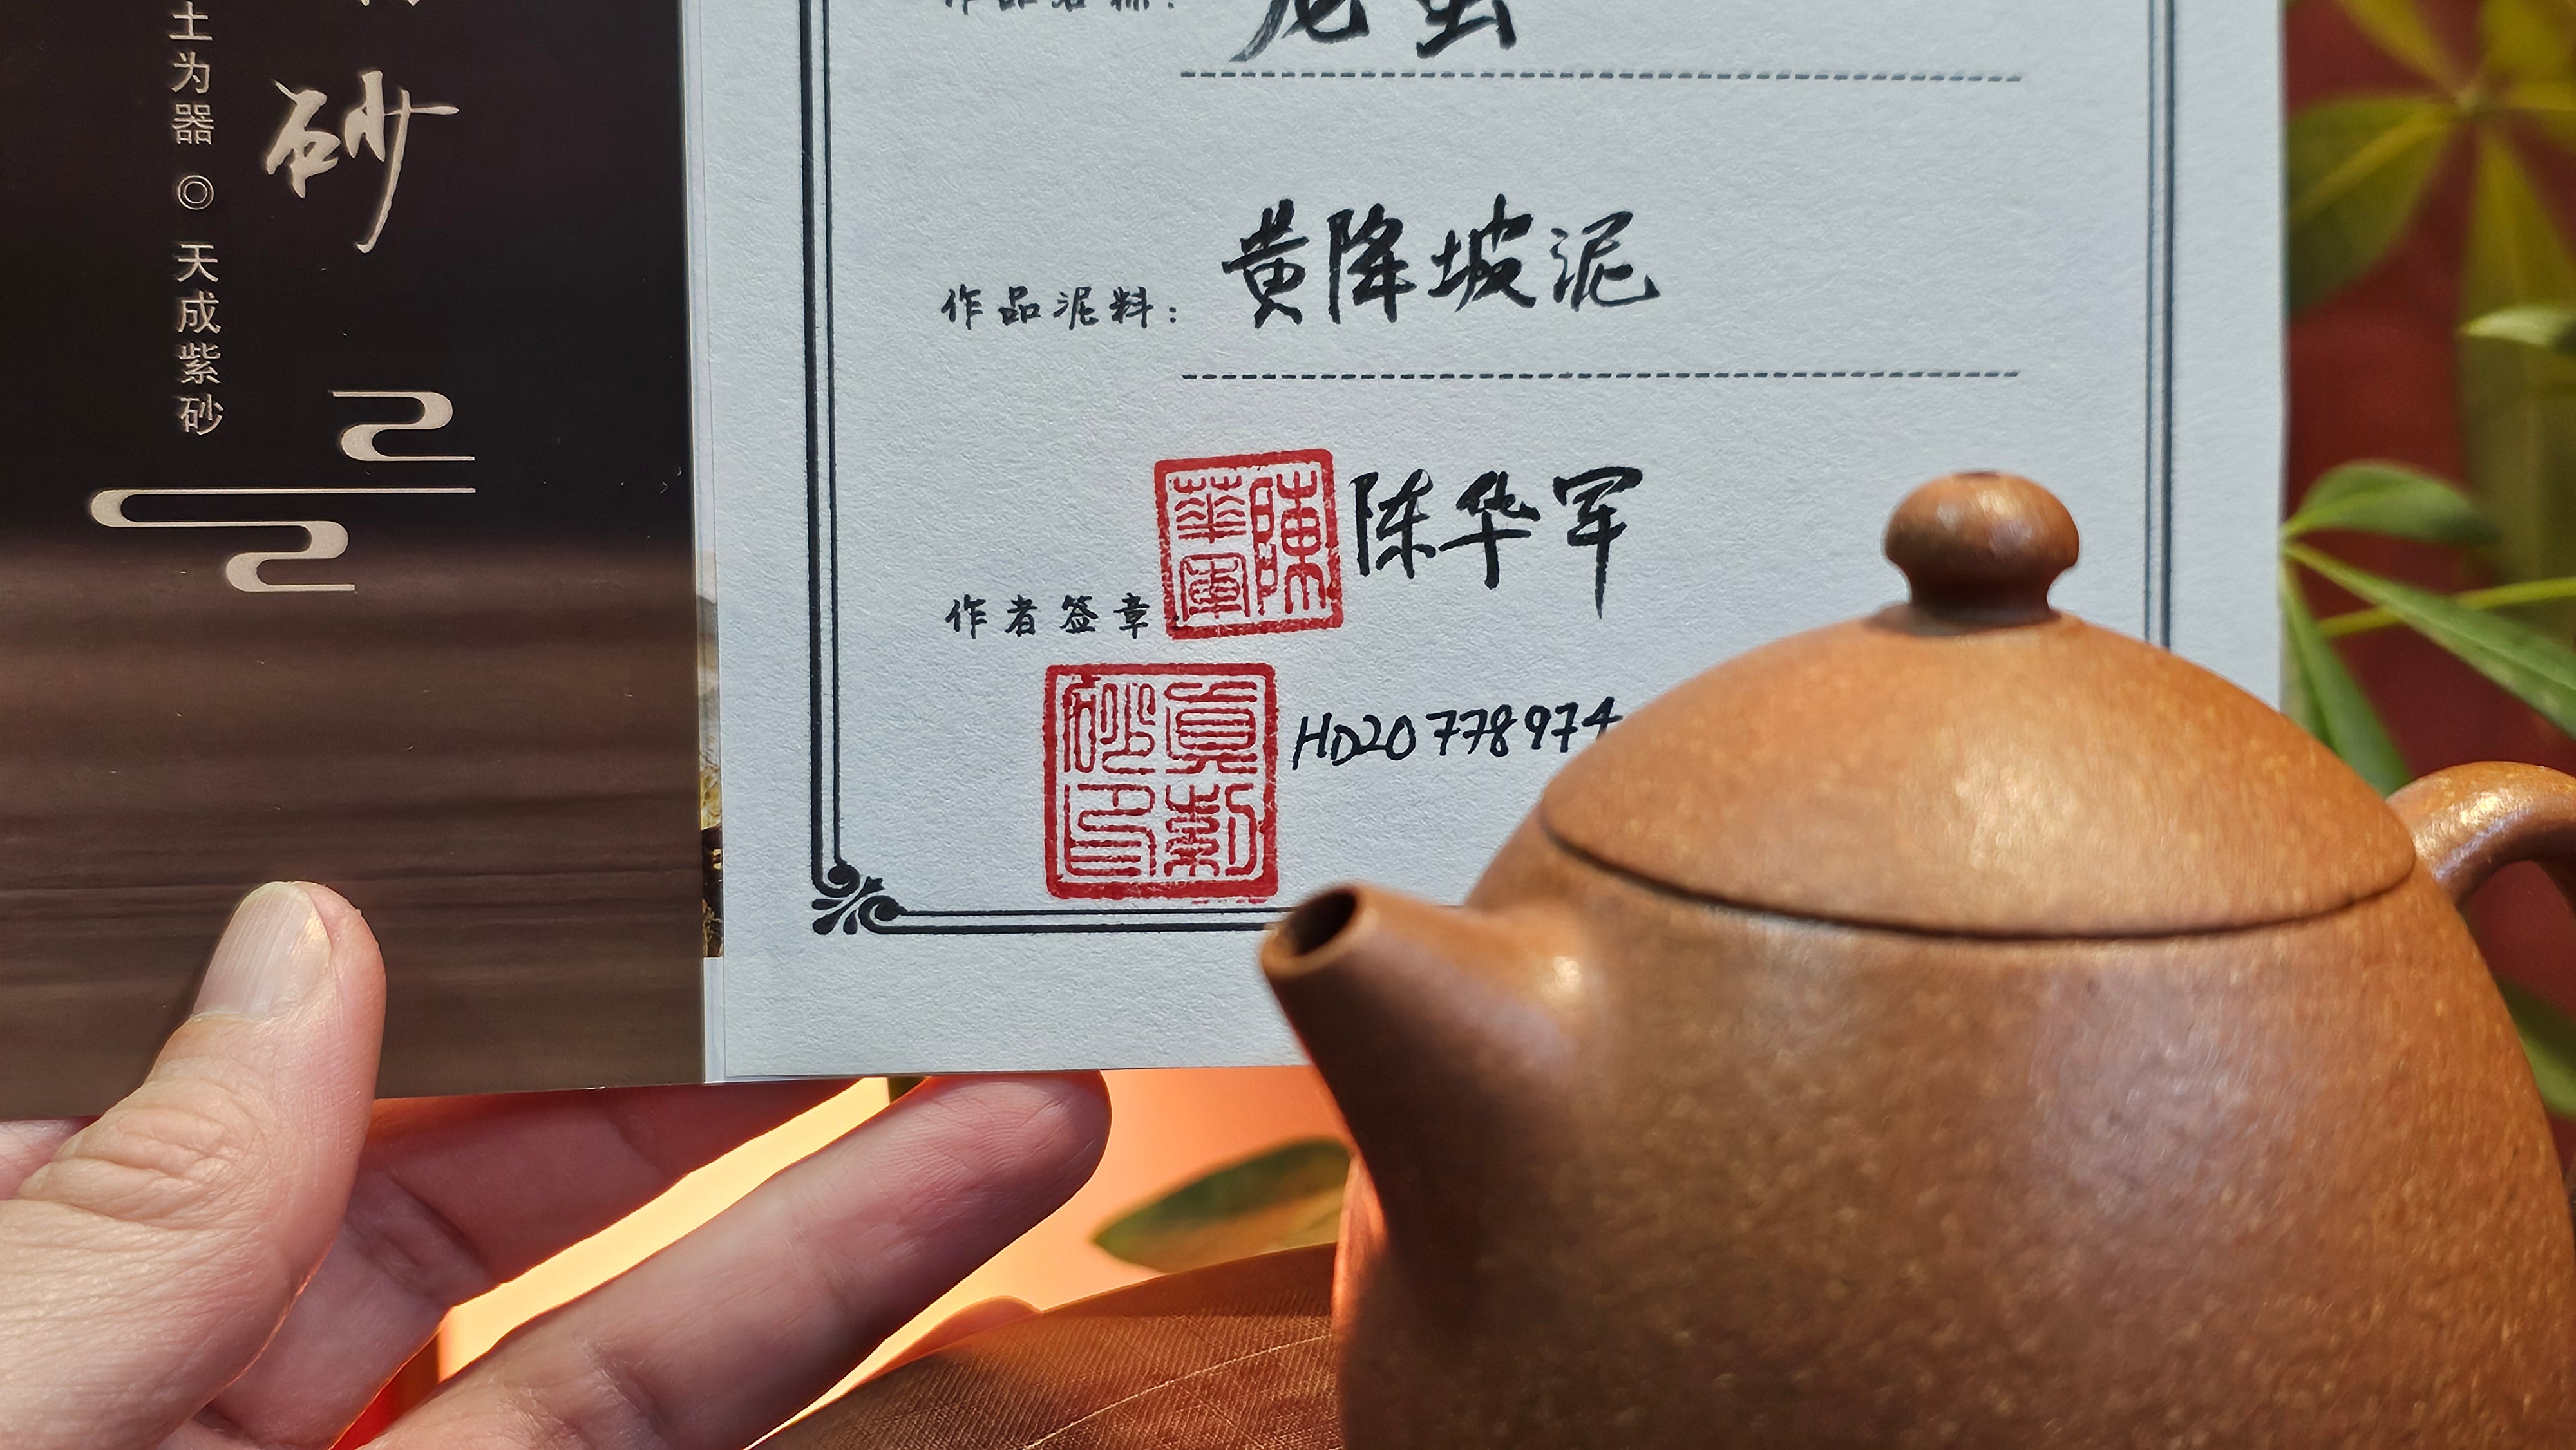 土为器◎天成紫砂
砂
作品名称:
龙蛋
作品泥料:
黄降坡泥
陈华军
陳華軍
作者签章
HD20778974
真製砂印